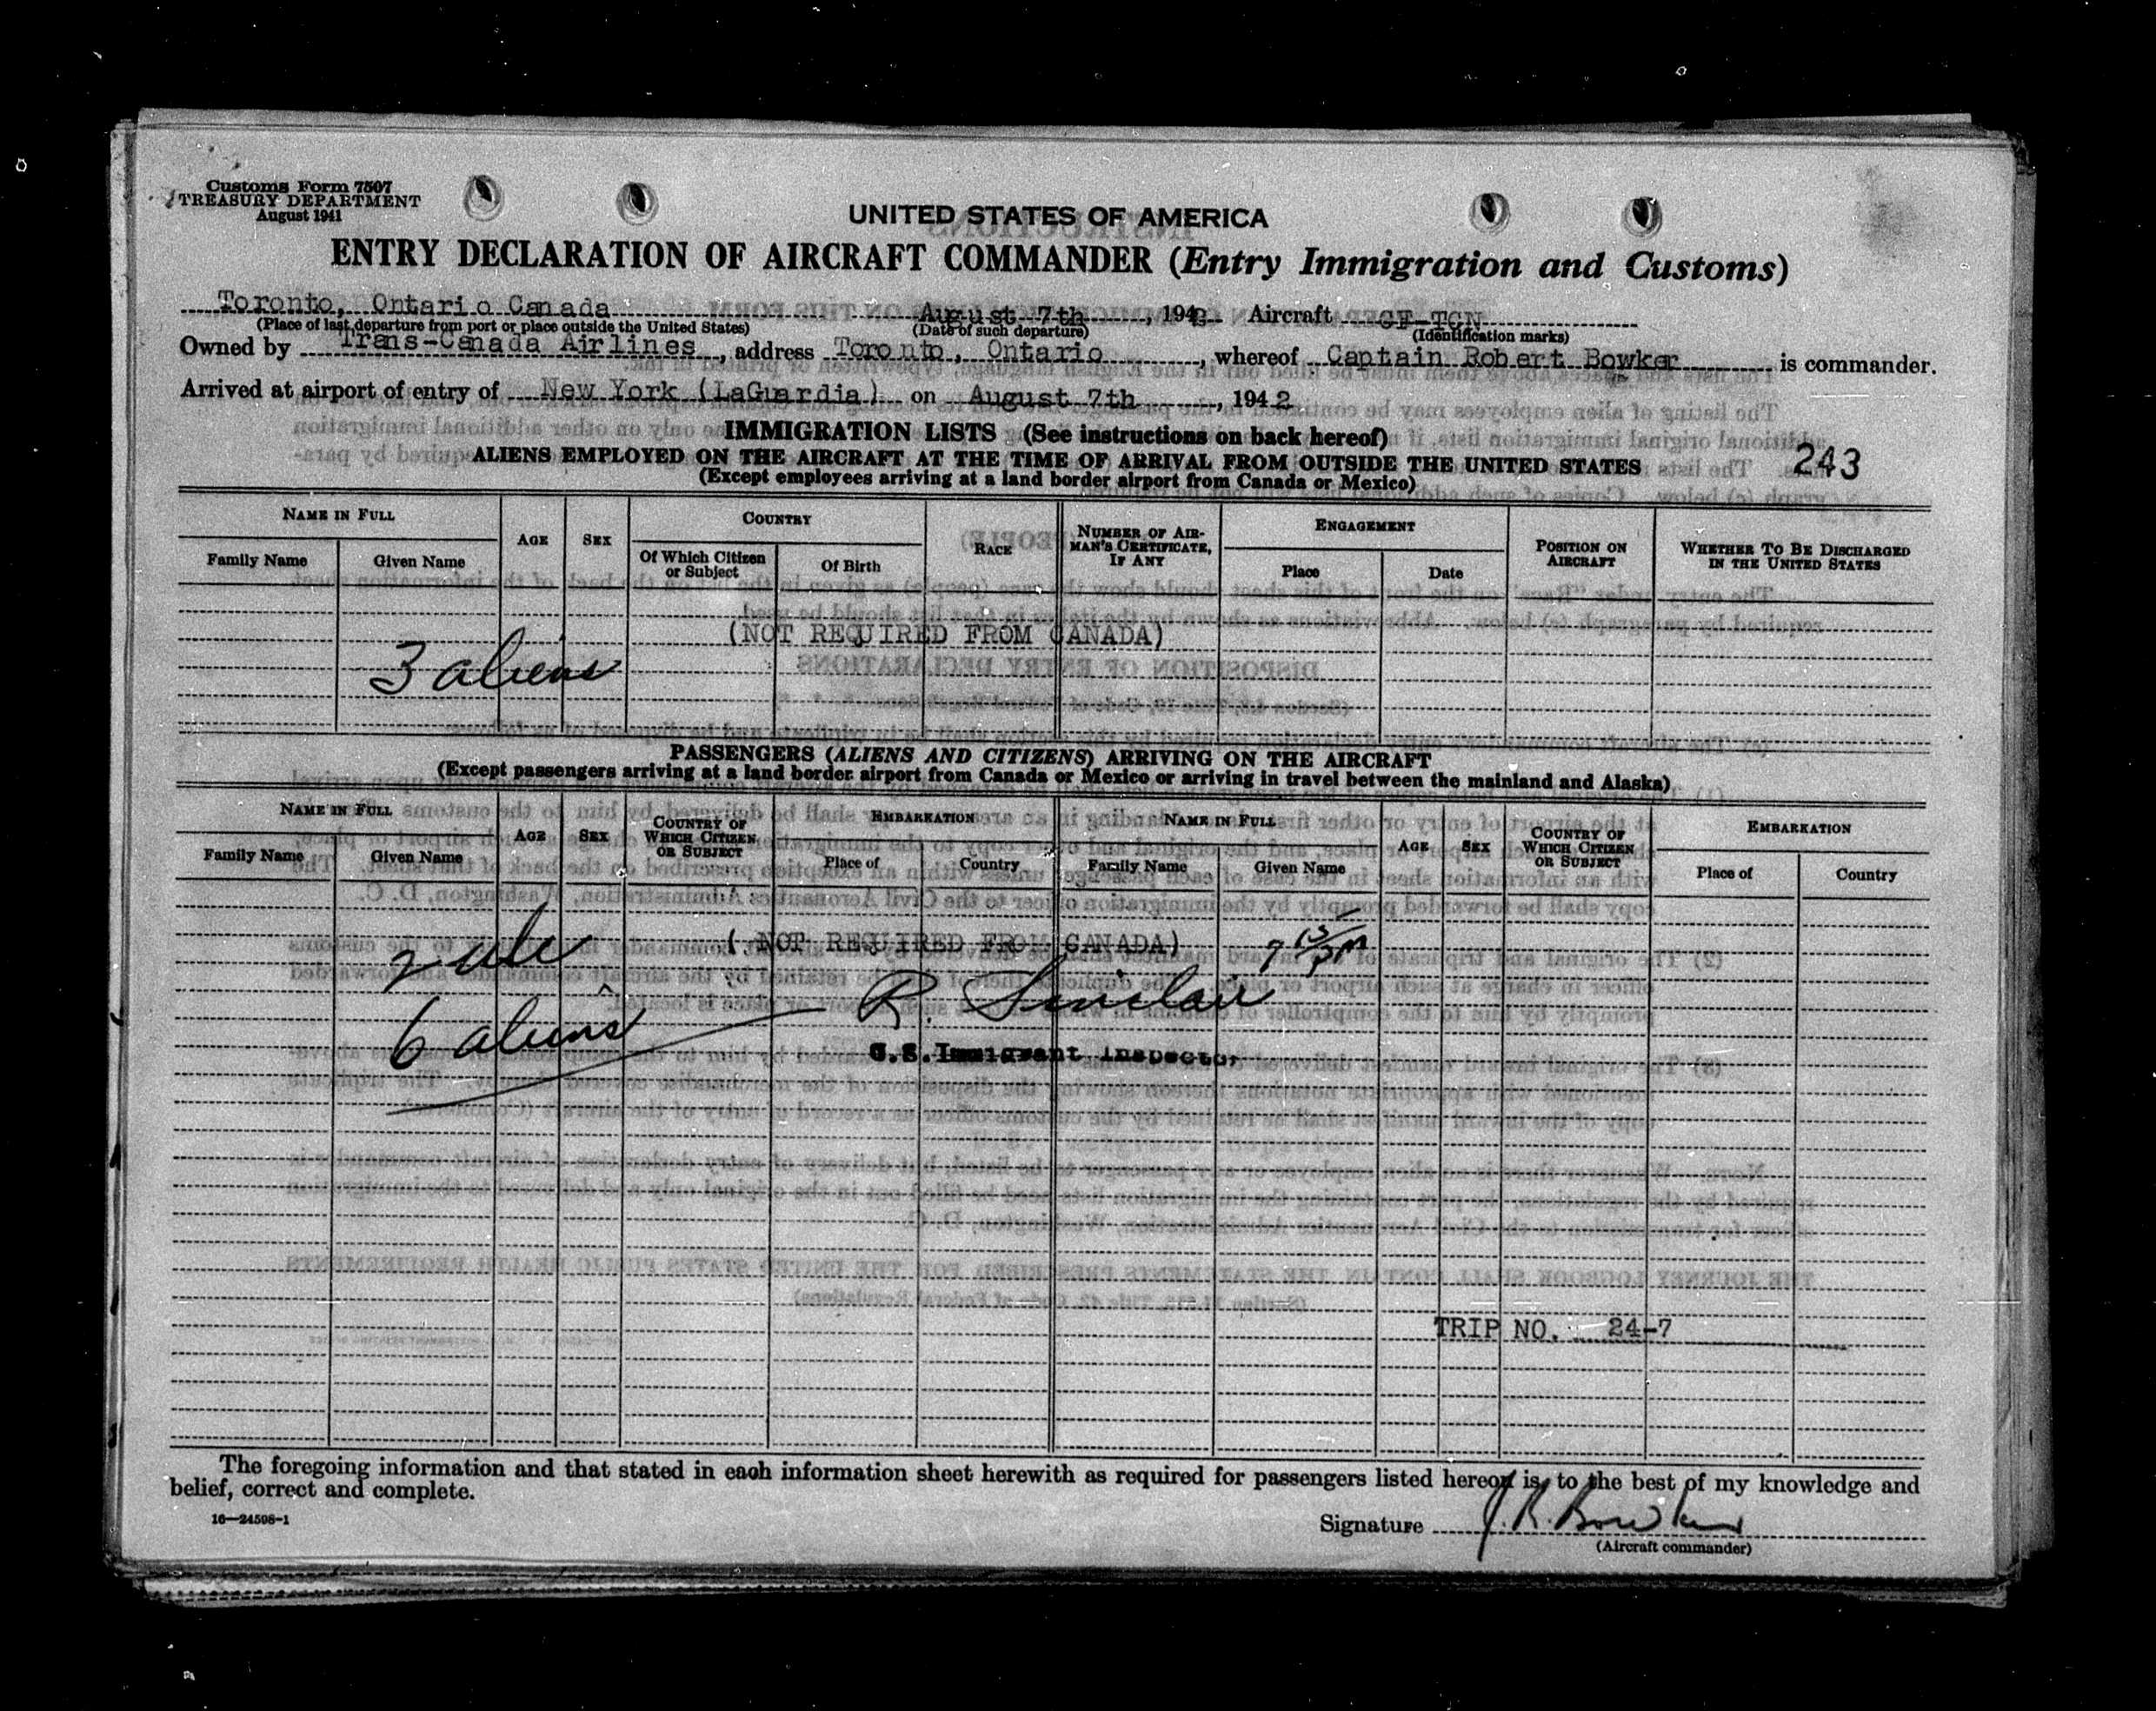 Customs Form 7507
TREASURY DEPARTMENT
August 1941
UNITED STATES OF AMERICA
ENTRY DECLARATION OF AIRCRAFT COMMANDER (Entry Immigration and Customs)
Toronto, Ontario Canada August 7th, 194 Aircraft CF-TCN
(Place of last departure from port or place outside the United States) (Date of such departure) (Identification marks)
Owned by Trans-Canada Airlines, address Toronto, Ontario, whereof Captain Robert Bowker is commander.
Arrived at airport of entry of New York (LaGuardia) on August 7th, 1942
IMMIGRATION LISTS (See instructions on back hereof)
ALIENS EMPLOYED ON THE AIRCRAFT AT THE TIME OF ARRIVAL FROM OUTSIDE THE UNITED STATES
243
(Except employees arriving at a land border airport from Canada or Mexico)
NAME IN FULL AGE SEX COUNTRY RACE NUMBER OF AIRMAN'S CERTIFICATE, IF ANY ENGAGEMENT POSITION ON AIRCRAFT WHETHER TO BE DISCHARGED IN THE UNITED STATES
Family Name Given Name Of Which Citizen or Subject Of Birth Place Date
(NOT REQUIRED FROM CANADA)
3 aliens
PASSENGERS (ALIENS AND CITIZENS) ARRIVING ON THE AIRCRAFT
(Except passengers arriving at a land border airport from Canada or Mexico or arriving in travel between the mainland and Alaska)
NAME IN FULL AGE SEX COUNTRY OF WHICH CITIZEN OR SUBJECT EMBARKATION NAME IN FULL AGE SEX COUNTRY OF WHICH CITIZEN OR SUBJECT EMBARKATION
Family Name Given Name Place of Country Family Name Given Name Place of Country
2 (NOT REQUIRED FROM CANADA) 7 15 PM
R. Sinclair
6 aliens
U.S. Immigrant Inspector
TRIP NO. 24-7
The foregoing information and that stated in each information sheet herewith as required for passengers listed hereon is, to the best of my knowledge and
belief, correct and complete.
16—24598-1
Signature J. R. Bowker
(Aircraft commander)